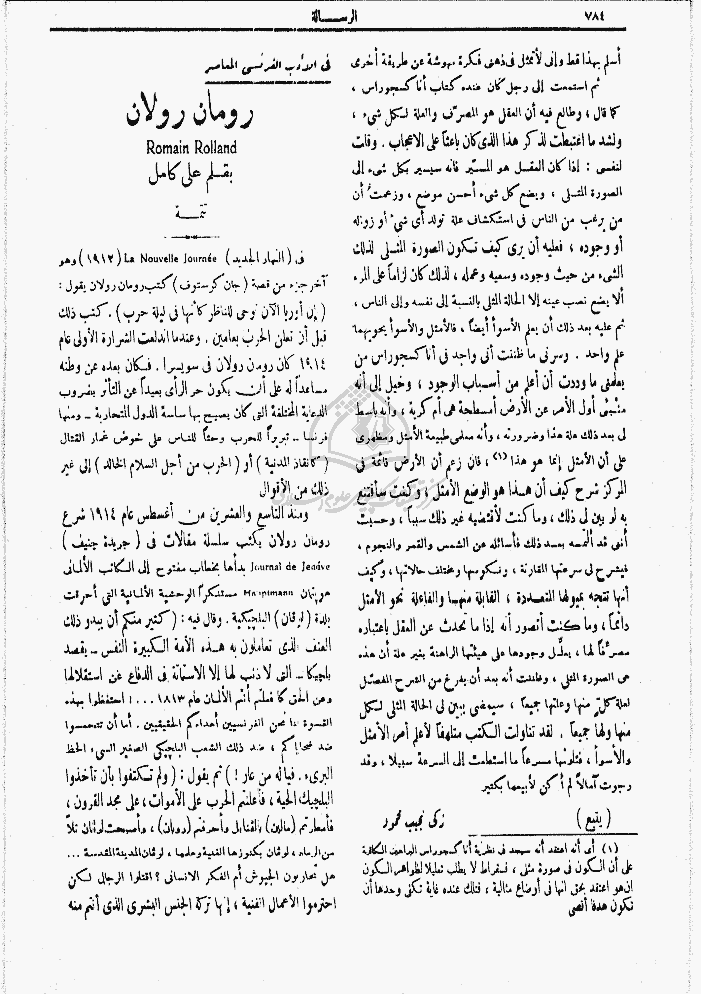 ٧٨٤
الرسالة
أسلم بهذا قط وإني لأتمثل في ذهني فكرة مهوشة عن طريقة أخرى
ثم استمعت إلى رجل كان عنده كتاب أنا كسجوراس ،
كما قال ، وطالع فيه أن العقل هو المصرّف والعلة لكل شيء ،
ولشد ما اغتبطت لذكر هذا الذي كان باعثاً على الاعجاب . وقلت
لنفسي : إذا كان العقل هو المسيّر فانه سيسير بكل شيء إلى
الصورة المثلى ، ويضع كل شيء أحسن موضع ، وزعمت أن
من يرغب من الناس في استكشاف علة تولد أي شيء أو زواله
أو وجوده ، فعليه أن يرى كيف تكون الصورة المثلى لذلك
الشيء من حيث وجوده وسعيه وعمله ، لذلك كان لزاماً على المرء
ألا يضع نصب عينه إلا الحالة المثلى بالنسبة إلى نفسه وإلى الناس ،
ثم عليه بعد ذلك أن يعلم الأسوأ أيضاً ، فالأمثل والأسوأ يحويهما
علم واحد . وسرني ما ظننت أني واجد في أنا كسجوراس من
يعلمني ما وددت أن أعلم من أسباب الوجود ، وخيل إلي أنه
منبئي أول الأمر عن الأرض أمسطحة هي أم كرية ، وأنه باسط
لي بعد ذلك علة هذا وضرورته ، وأنه معلمي طبيعة الأمثل ومظهري
على أن الأمثل إنما هو هذا (١) ، فان زعم أن الأرض قائمة في
المركز شرح كيف أن هذا هو الوضع الأمثل ، وكنت سأقتنع
به لو بين لي ذلك ، وما كنت لأقتضيه غير ذلك سبباً ، وحسبت
أنني قد ألتمسه بعد ذلك فأسائله عن الشمس والقمر والنجوم ،
فيشرح لي سرعتها المقارنة ، ونكوسها ومختلف حالاتها ، وكيف
أنها تتجه بميولها المتعددة ، القابلة منها والفاعلة نحو الأمثل
دائماً ، وما كنت أتصور أنه إذا ما تحدث عن العقل باعتباره
مصرّفاً لها ، يعلّل وجودها على هيئتها الراهنة بغير علة أن هذه
هي الصورة المثلى ، وظننت أنه بعد أن يفرغ من الشرح المفصّل
لعلة كلٍّ منها وعلتها جميعاً ، سيمضي يبين لي الحالة المثلى لكل
منها ولها جميعاً . لقد تناولت الكتب متلهفاً لأعلم أمر الأمثل
والأسوأ ، فتلوتها مسرعاً ما استطعت إلى السرعة سبيلا ، وقد
رجوت آمالاً لم أكن لأبيعها بكثير
( يتبع ) زكي نجيب محمود
(١) أي أنه اعتقد أنه سيجد في نظرية أنا كسجوراس البراهين الكافية
على أن الكون في صورة مثلى ، فسقراط لا يطلب تعليلا لظواهر الكون
إن هو اعتقد بحق أنها في أوضاع مثالية ، فتلك عنده غاية تكفي وحدها أن
تكون هدفا أقصى
في الأدب الفرنسي المعاصر
رومان رولان
Romain Rolland
بقلم علي كامل
تتمة
في ( النهار الجديد ) La Nouvelle Journée (١٩١٢) وهو
آخر جزء من قصة ( جان كرستوف ) كتب رومان رولان يقول :
( إن أوربا الآن توحي للناظر كأنها في ليلة حرب ) . كتب ذلك
قبل أن تعلن الحرب بعامين . وعندما اندلعت الشرارة الأولى عام
١٩١٤ كان رومان رولان في سويسرا . فكان بعده عن وطنه
مساعداً له على أن يكون حر الرأي بعيداً عن التأثر بضروب
الدعاية المختلفة التي كان يصيح بها ساسة الدول المتحاربة ــ ومنها
فرنسا ــ تبريراً للحرب وحثاً للناس على خوض غمار القتال
( كانقاذ المدنية ) أو ( الحرب من أجل السلام الخالد ) إلى غير
ذلك من الأقوال
ومنذ التاسع والعشرين من أغسطس عام ١٩١٤ شرع
رومان رولان يكتب سلسلة مقالات في ( جريدة جنيف )
Journal de Jenéve بدأها بخطاب مفتوح إلى الكاتب الألماني
هوبتمان Hauptmann مستنكراً الوحشية الألمانية التي أحرقت
بلدة ( لوفان ) البلجيكية . وقال فيه : ( كثير منكم أن يبدو ذلك
العنف الذي تعاملون به هذه الأمة الكبيرة النفس ــ يقصد
بلجيكا ــ التي لا ذنب لها إلا الاستماتة في الدفاع عن استقلالها
وعن الحق كما فعلتم أنتم الألمان عام ١٨١٣ ... ! استفظوا بهذه
القسوة لنا نحن الفرنسيين أعداءكم الحقيقيين . أما أن تتحمسوا
ضد ضحاياكم ، ضد ذلك الشعب البلجيكي الصغير السيء الحظ
البريء . فياله من عار ! ) ثم يقول : ( ولم تكتفوا بأن تأخذوا
البلجيك الحية ، فأعلنتم الحرب على الأموات ، على مجد القرون ،
فأمطرتم ( مالين ) بالقنابل وأحرقتم ( روبان ) ، وأصبحت لوفان تلاً
من الرماد ، لوفان بكنوزها الفنية وعلمها ، لوفان المدينة المقدسة ...
هل تحاربون الجيوش أم الفكر الانساني ؟ اقتلوا الرجال لكن
احترموا الأعمال الفنية ، إنها تركة الجنس البشري الذي أنتم منه